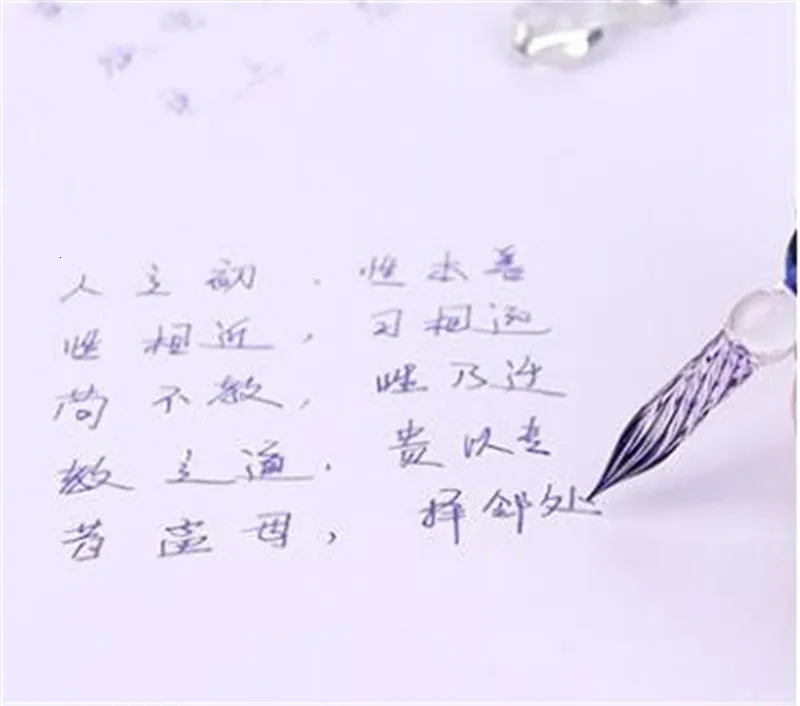 人之初，性本善
性相近，习相远
苟不教，性乃迁
教之道，贵以专
昔孟母，择邻处